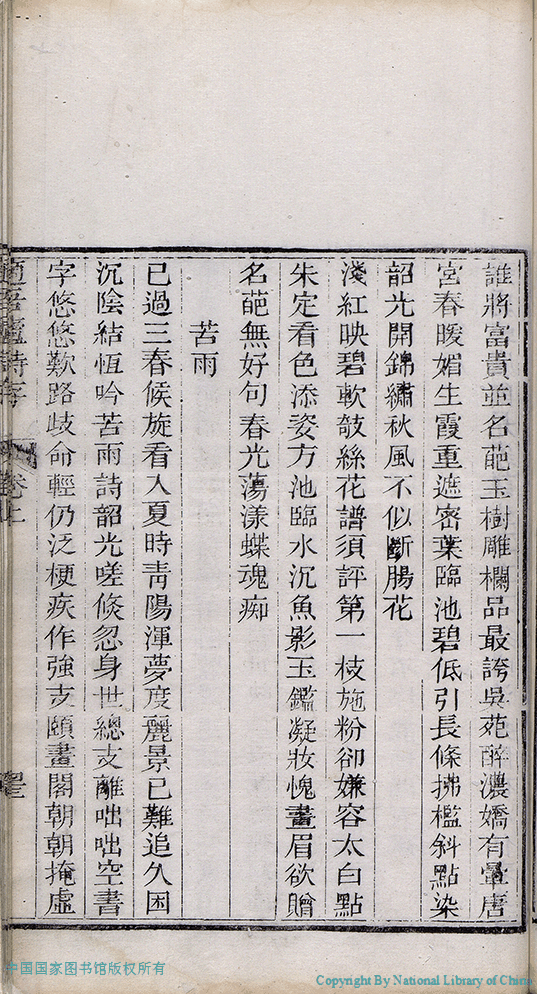 誰將富貴並名葩玉樹雕欄品最誇吳苑醉濃嬌有暈唐
宮春暖媚生霞重遮密葉臨池碧低引長條拂檻斜點染
韶光開錦繡秋風不似斷腸花
淺紅映碧軟敧絲花譜須評第一枝施粉卻嫌容太白點
朱定看色添姿方池臨水沉魚影玉鑑凝妝愧畫眉欲贈
名葩無好句春光蕩漾蝶魂痴
苦雨
已過三春候旋看入夏時靑陽渾夢度麗景已難追久困
沉陰結恆吟苦雨詩韶光嗟倏忽身世總支離咄咄空書
字悠悠歎路歧命輕仍泛梗疾作強支頤畫閣朝朝掩虛
詩存 卷上
中国国家图书馆版权所有
Copyright By National Library of China